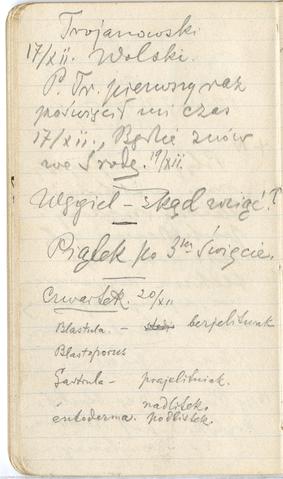 Trojanowski
17/XII. Wolski.
P. Tr. pierwszy raz
poświęcił mi czas
17/XII., Będzie znów
we Środę. 19/XII.
Węgiel – skąd wziąć?
Piątek po 3ciej Święcie.
Czwartek. 20/XII
Blastula. – berjelitniak
Blastoporus
Gastrula – prajelitniak.
nadlistek.
entoderma. podlistek.